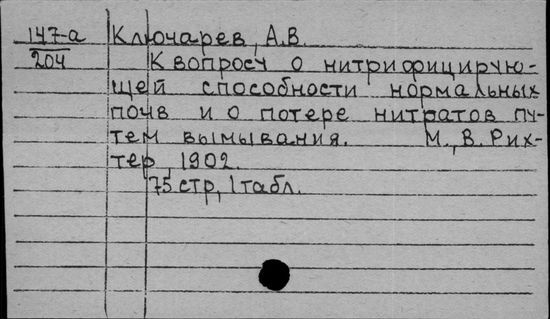 147-а Ключарев, А.В.
204 К вопросу о нитрифицирую-
щей способности нормальных
почв и о потере нитратов пу-
тем вымывания. М., В. Рих-
тер, 1902.
75 стр, 1 табл.